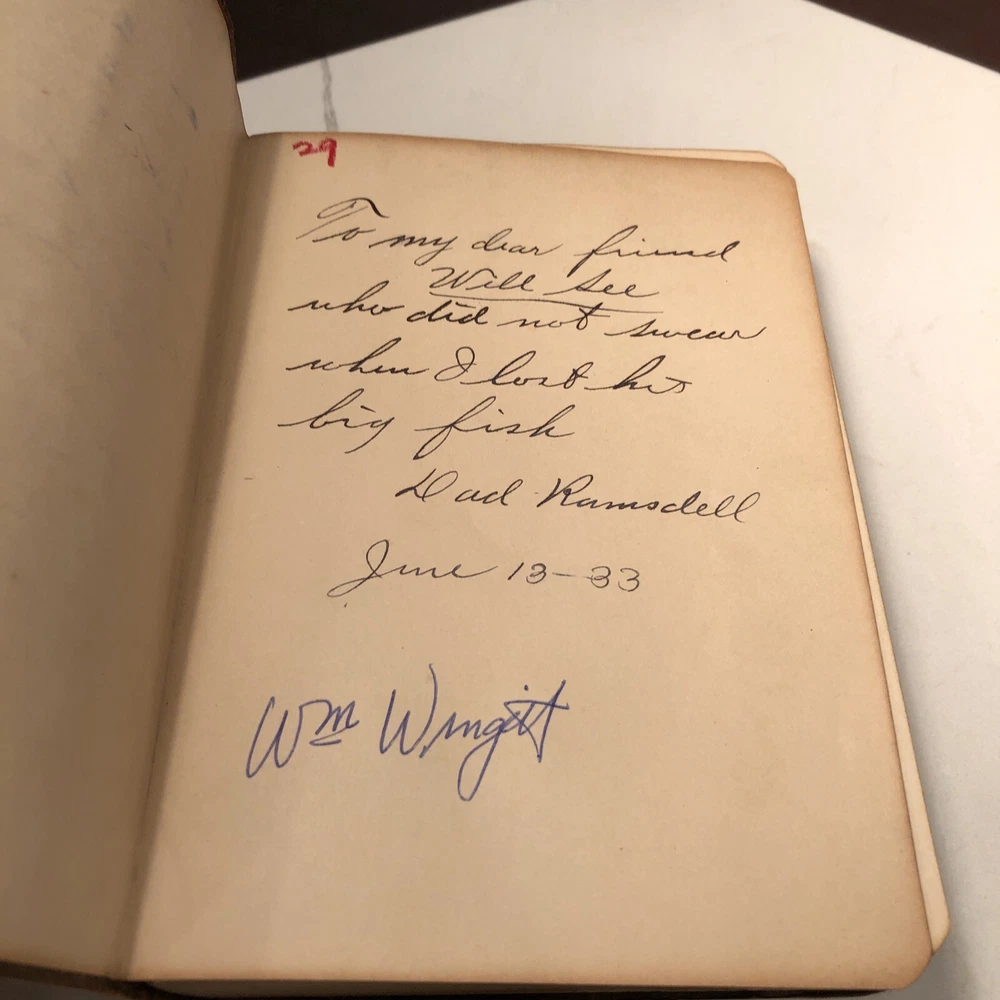 29
To my dear friend
Will See
who did not swear
when I lost his
big fish
Dad Ramsdell
June 13-33
Wm